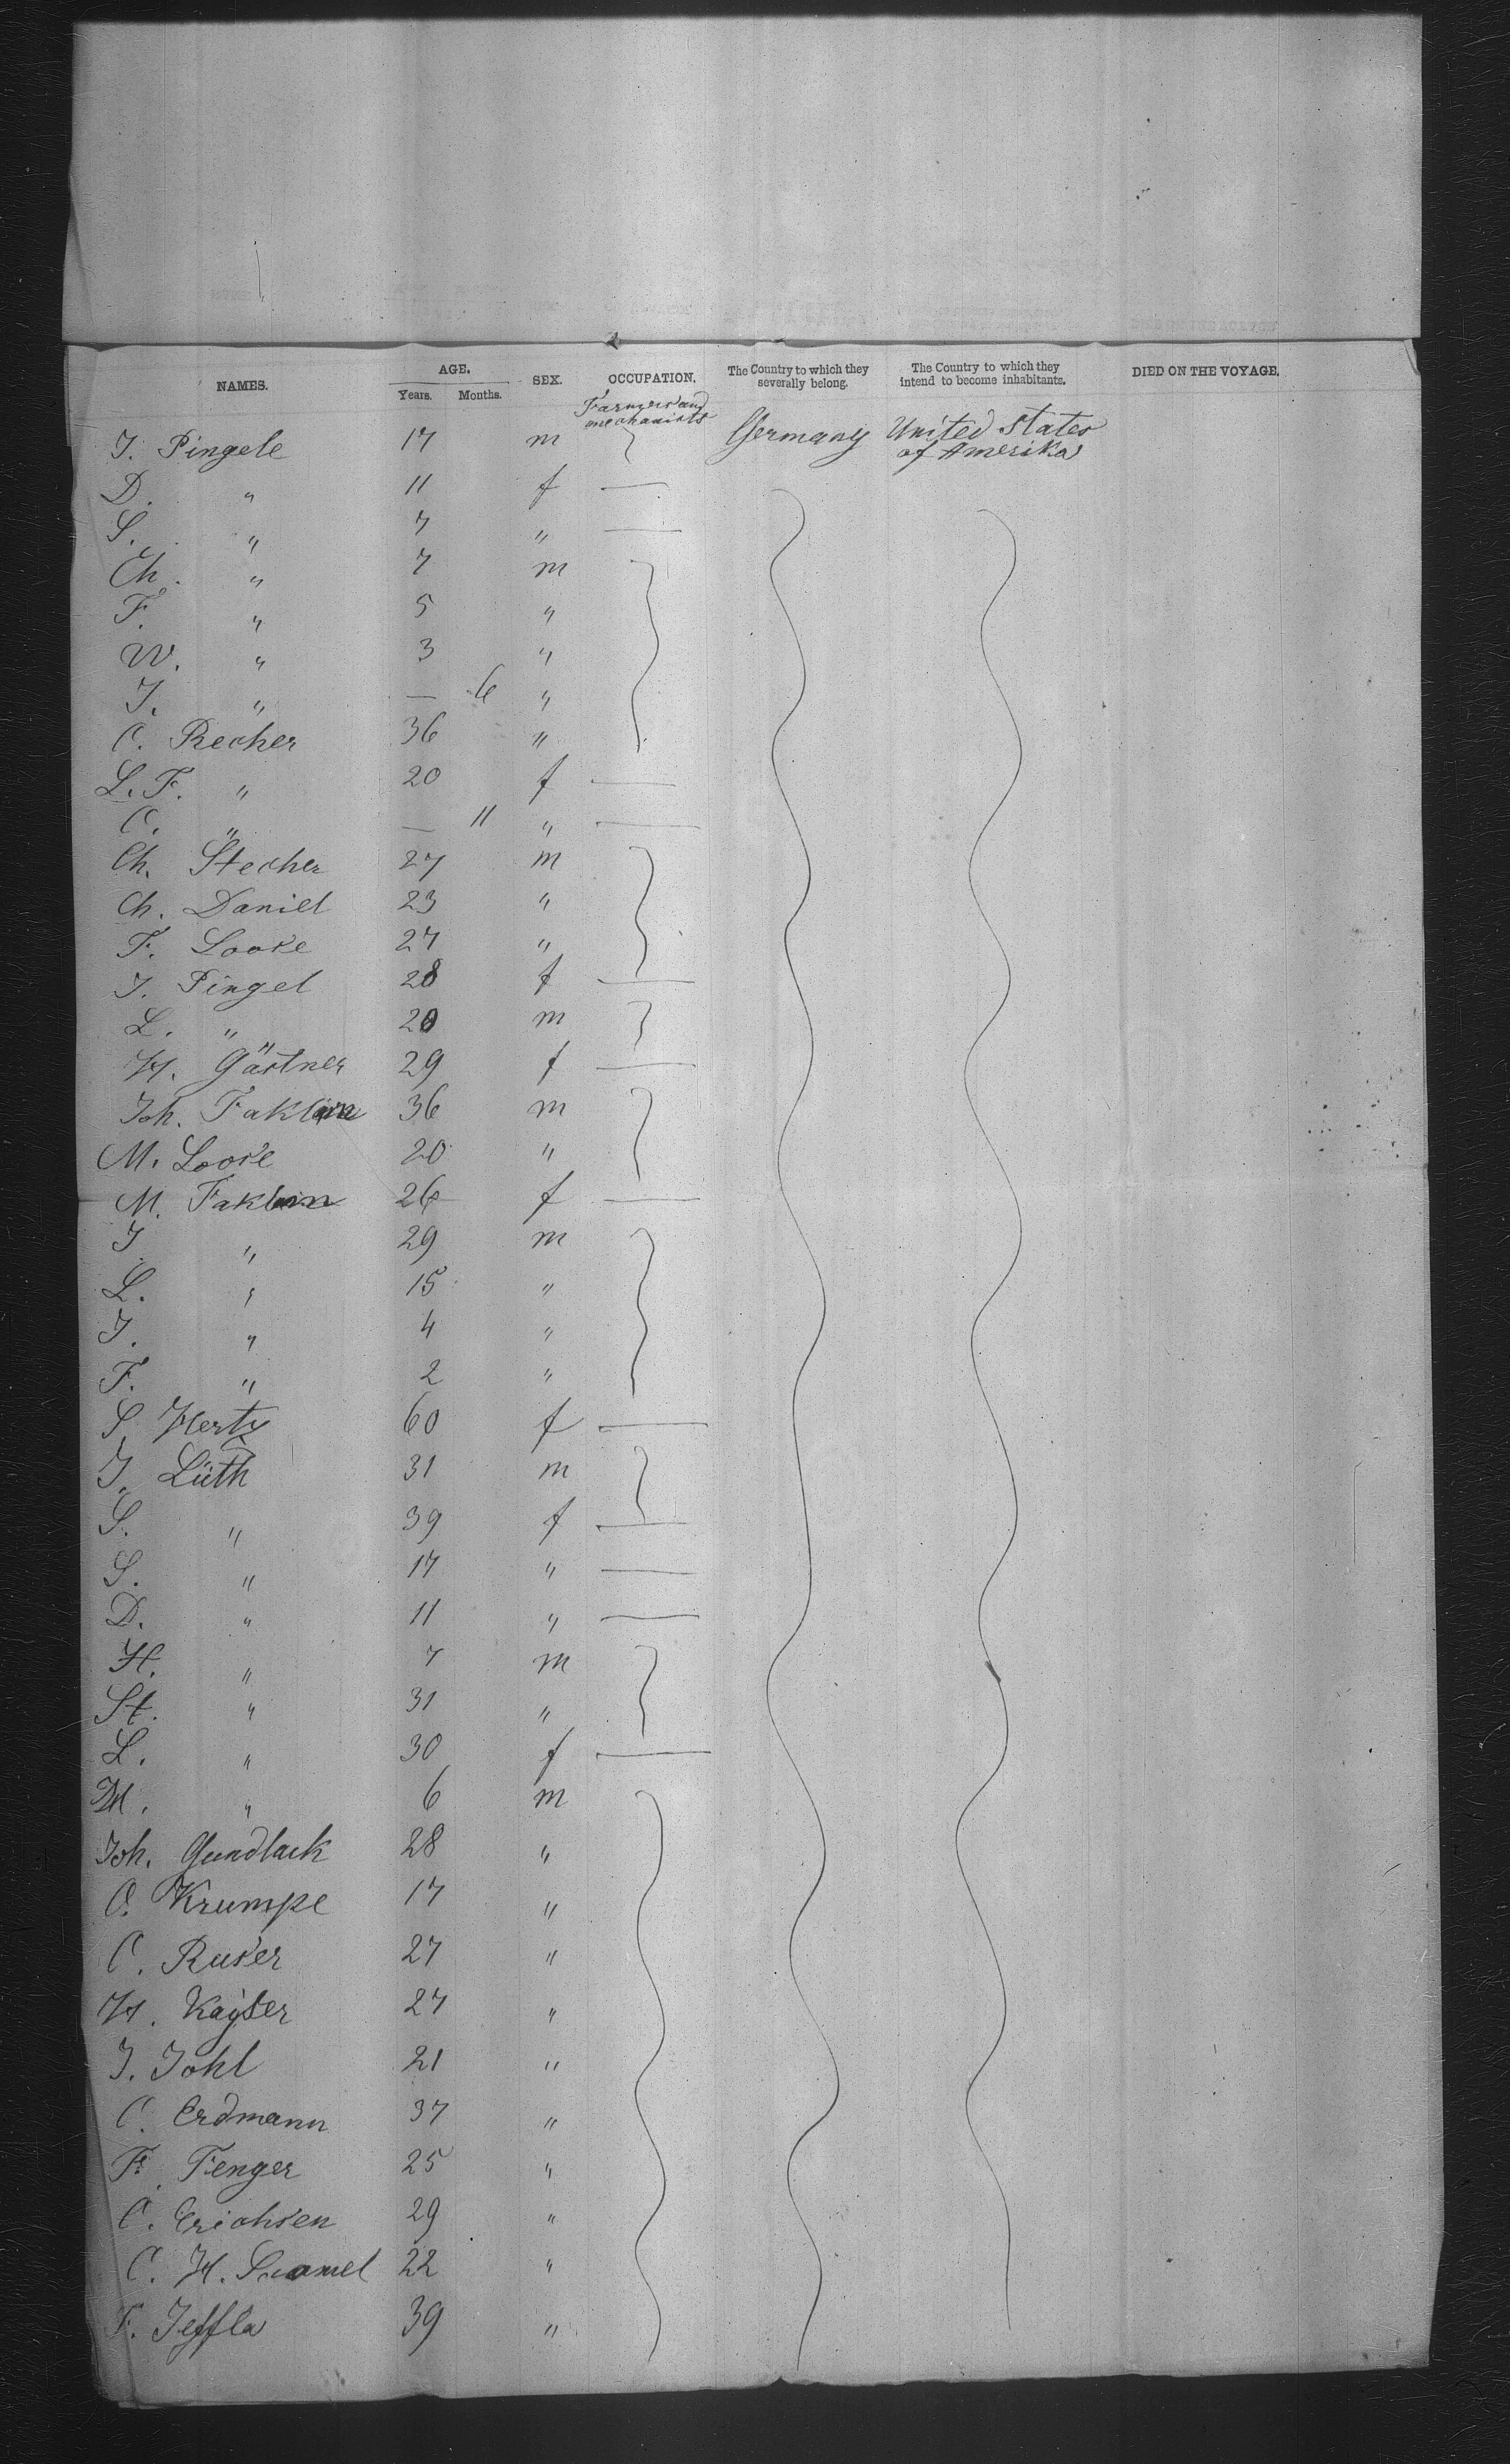 NAMES. AGE. SEX. OCCUPATION. The Country to which they severally belong. The Country to which they intend to become inhabitants. DIED ON THE VOYAGE.
Years. Months.
Farmers and mechanists
J. Pingele 17 m Germany United States of Amerika
D. " 11 f —
S. " 7 " —
Ch. " 7 m
F. " 5 "
W. " 3 "
J. " — 6 "
C. Recher 36 "
L. F. " 20 f —
C. " — 11 " —
Ch. Stecher 27 m
Ch. Daniel 23 "
F. Loose 27 "
J. Pingel 28 f —
L. " 20 m
H. Gästner 29 f —
Joh. 36 m
M. Loose 20 "
M. 26 f —
J. " 29 m
L. " 15 "
J. " 4 "
F. " 2 "
S. Hertz 60 f —
J. Lüth 31 m
S. " 39 f —
S. " 17 " —
D. " 11 " —
H. " 7 m
St. " 31 "
L. " 30 f —
M. " 6 m
Joh. Gundlack 28 "
C. Krumpe 17 "
C. Ruser 27 "
H. Kayser 27 "
J. Johl 21 "
C. Erdmann 37 "
F. Fenger 25 "
C. Erichsen 29 "
C. H. 22 "
F. Jeffla 39 "